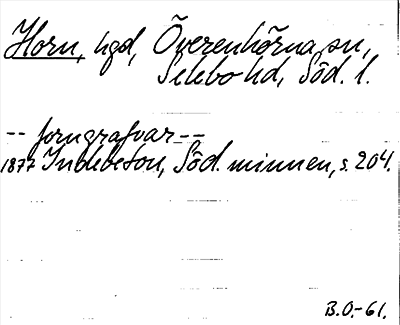 Horn, hgd, Överenhörna sn,
Selebo hd, Söd. l.
-- forngrafvar --
1877 Indebetou, Söd. minnen, s. 204.
B.O.-61.